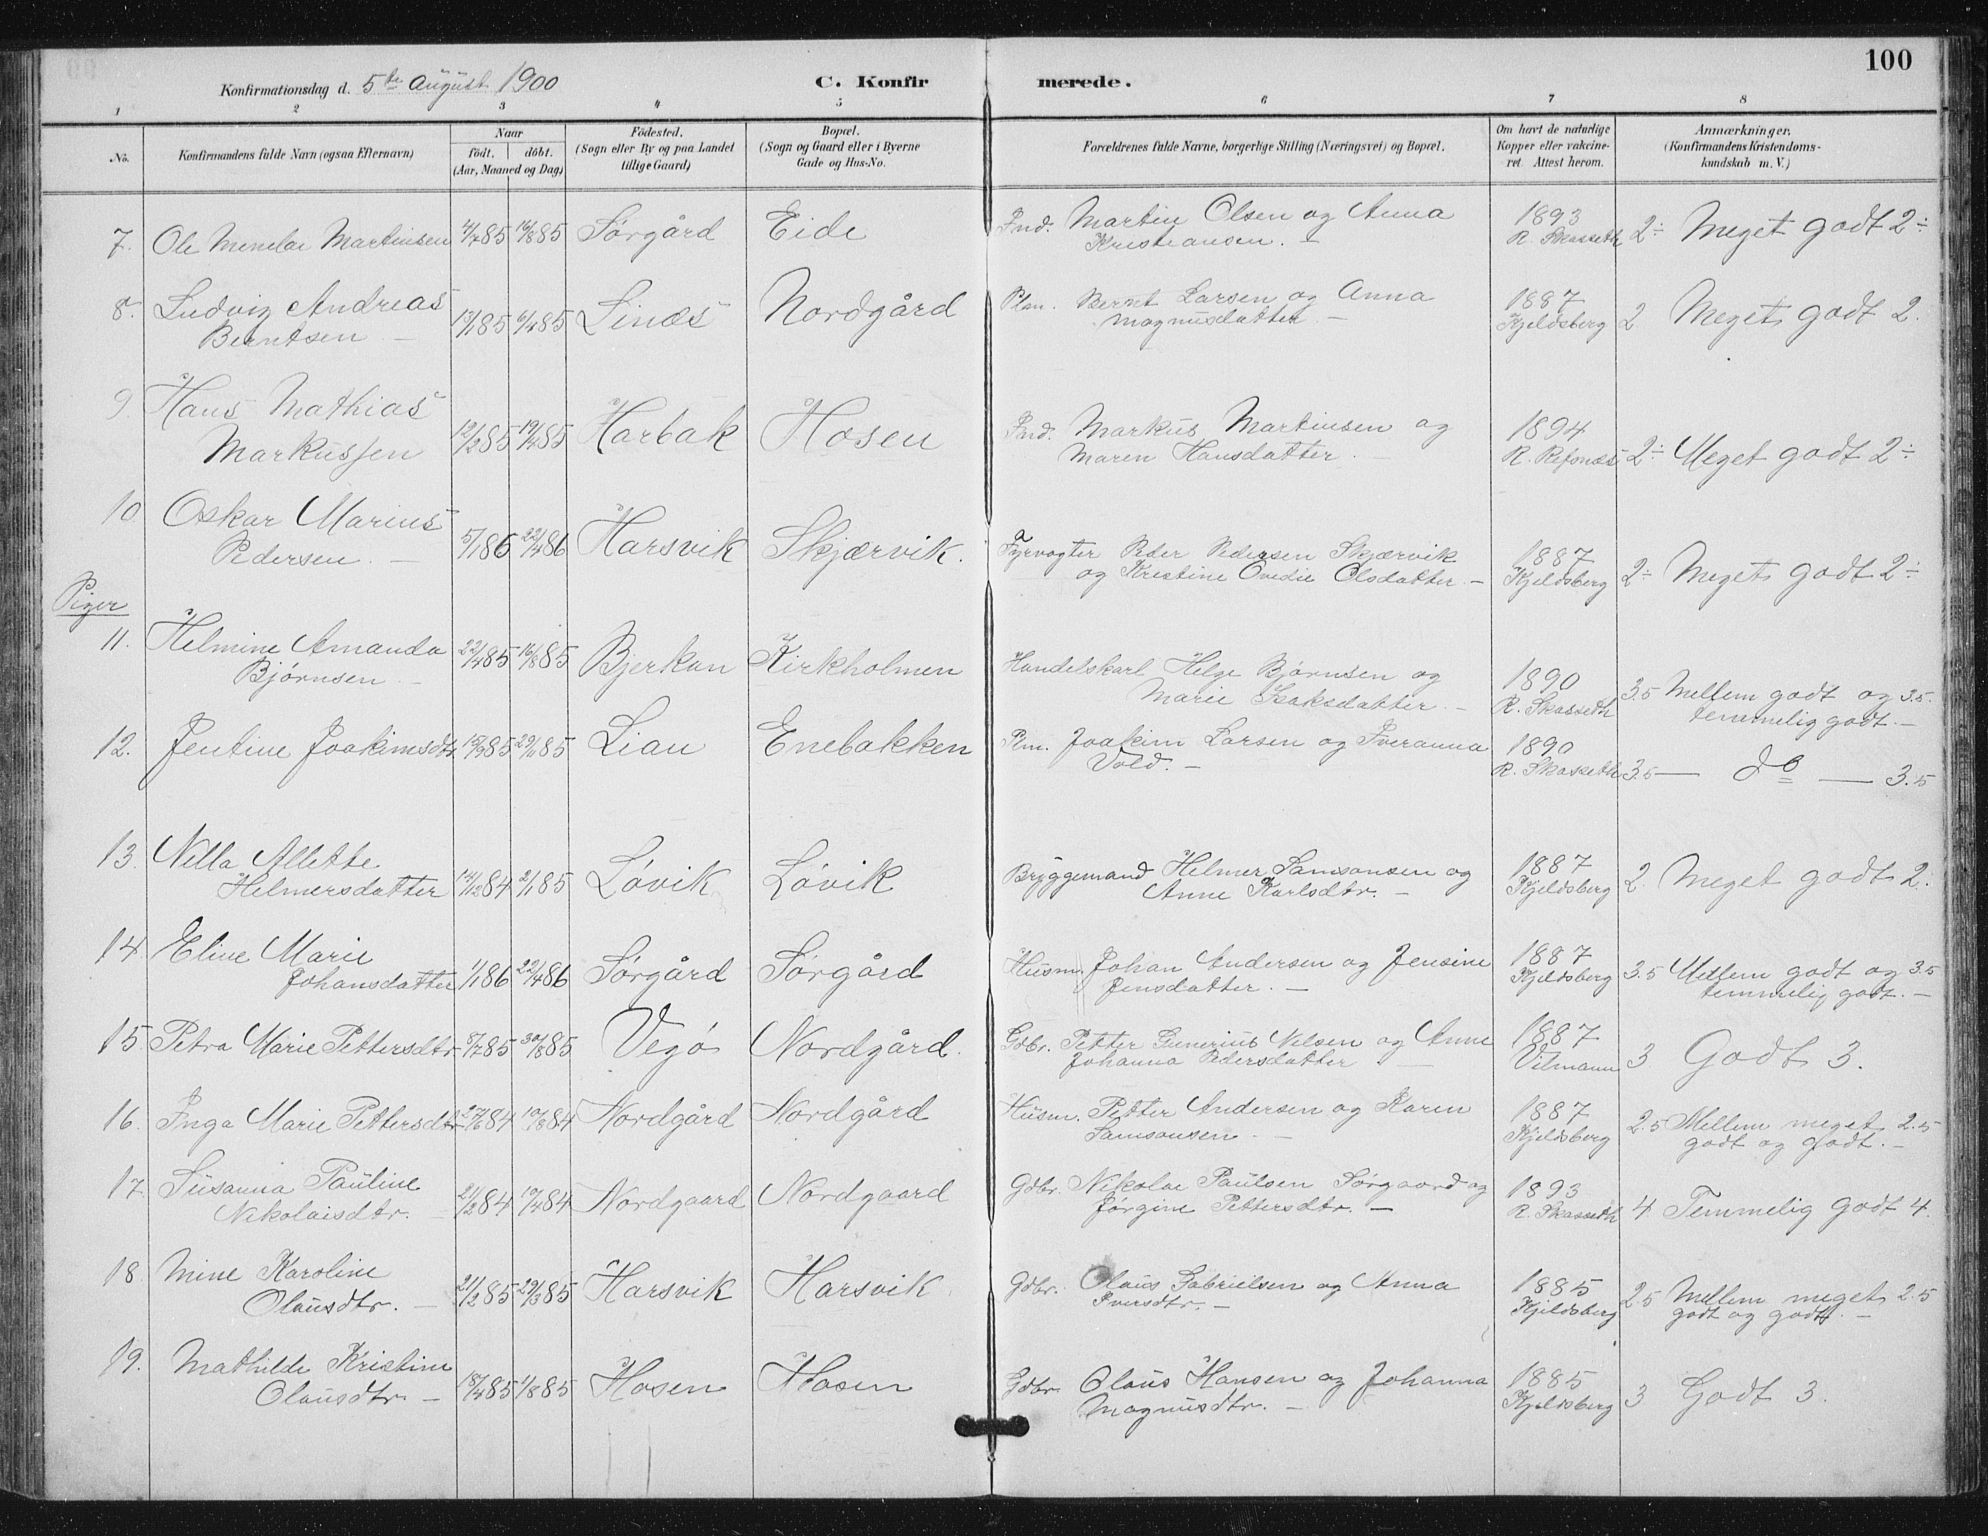 100
Konfirmationsdag d. 5te August 1900 C. Konfirmerede.
1 2 3 4 5 6 7 8
No. Konfirmandens fulde Navn (ogsaa Efternavn) Naar födt. döbt. (Aar, Maaned og Dag) Födested. (Sogn eller By og paa Landet tillige Gaard) Bopæl. (Sogn og Gaard eller i Byerne Gade og Hus-No. Forældrenes fulde Navne, borgerlige Stilling (Næringsvei) og Bopæl. Om havt de naturlige Kopper eller vakcineret. Attest herom. Anmærkninger. (Konfirmandens Kristendomskundskab m. V.)
7. Ole Menelai Martinsen 4/7 85 16/8 85 Sørgård Eide Ind. Martin Olsen og Anna Kristiansen. – 1893 R. Skasseth 2÷ Meget godt 2÷
8. Ludvig Andreas Berntsen – 13/1 85 6/4 85 Linæs Nordgård Plm. Bernt Larsen og Anna Magnusdatter – 1887 Kjeldsberg 2 Meget godt 2.
9. Hans Mathias Markussen 12/2 85 19/4 85 Harbak Hosen Ind. Markus Martinsen og Maren Hansdatter. – 1894 R. Refsnæs 2÷ Meget godt 2÷
10. Oskar Marius Pedersen. – 5/1 86 22/4 86 Harsvik Skjærvik. Fyrvogter Peder Pedersen Skjærvik og Kristine Ovedie Olsdatter. – 1887 Kjeldsberg 2÷ Meget godt 2÷
Piger
11. Helmine Amanda Bjørnsen – 22/4 85 16/8 85 Bjerkan Kirkholmen Handelskarl Helge Bjørnsen og Marie Isaksdatter. – 1890 R. Skasseth 3.5 Mellem godt og 3.5. temmelig godt. –
12. Jentine Joakimsdtr 15/9 85 29/11 85 Lian Enebakken Plm. Joakim Larsen og Iveranna Vold. – 1890 R. Skasseth 3.5 — do — 3.5
13. Nilla Alette Helmersdatter 14/12 84 2/1 85 Løvik Løvik Bryggemand Helmer Samsonsen og Anne Karlsdtr. – 1887 Kjeldsberg 2. Meget godt 2.
14. Eline Marie Johansdatter 1/1 86 22/4 86 Sørgård Sørgård Husm. Johan Andersen og Jensine Jensdatter. – 1887 Kjeldsberg 3.5 Mellem godt og 3.5 temmelig godt. –
15. Petra Marie Pettersdtr. 8/7 85 30/8 85 Vegø Nordgård. Gdbr. Petter Gunerius Nilsen og Anne Johanna Pedersdatter – 1887 Vilmann 3 Godt 3.
16. Inga Marie Pettersdtr 27/6 84 10/8 84 Nordgård Nordgård Husm. Petter Andersen og Karen Samsonsen – 1887 Kjeldsberg 2.5 Mellem meget 2.5 godt og godt. –
17. Susanna Pauline Nikolaisdtr. – 21/2 84 10/4 84 Nordgaard Nordgaard Gdbr. Nikolai Paulsen Sørgaard og Jørgine Pettersdtr. – 1893 R. Skasseth 4. Temmelig godt 4.
18. Mine Karoline Olausdtr. – 21/2 85 29/3 85 Harsvik Harsvik Gdbr. Olaus Gabrielsen og Anna Iversdtr. – 1885 Kjeldsberg 2.5 Mellem meget 2.5 godt og godt. –
19. Mathilde Kristine Olausdtr – 18/4 85 1/8 85 Hosen Hosen Gdbr. Olaus Hansen og Johanna Magnusdtr. – 1885 Kjeldsberg 3 Godt 3.